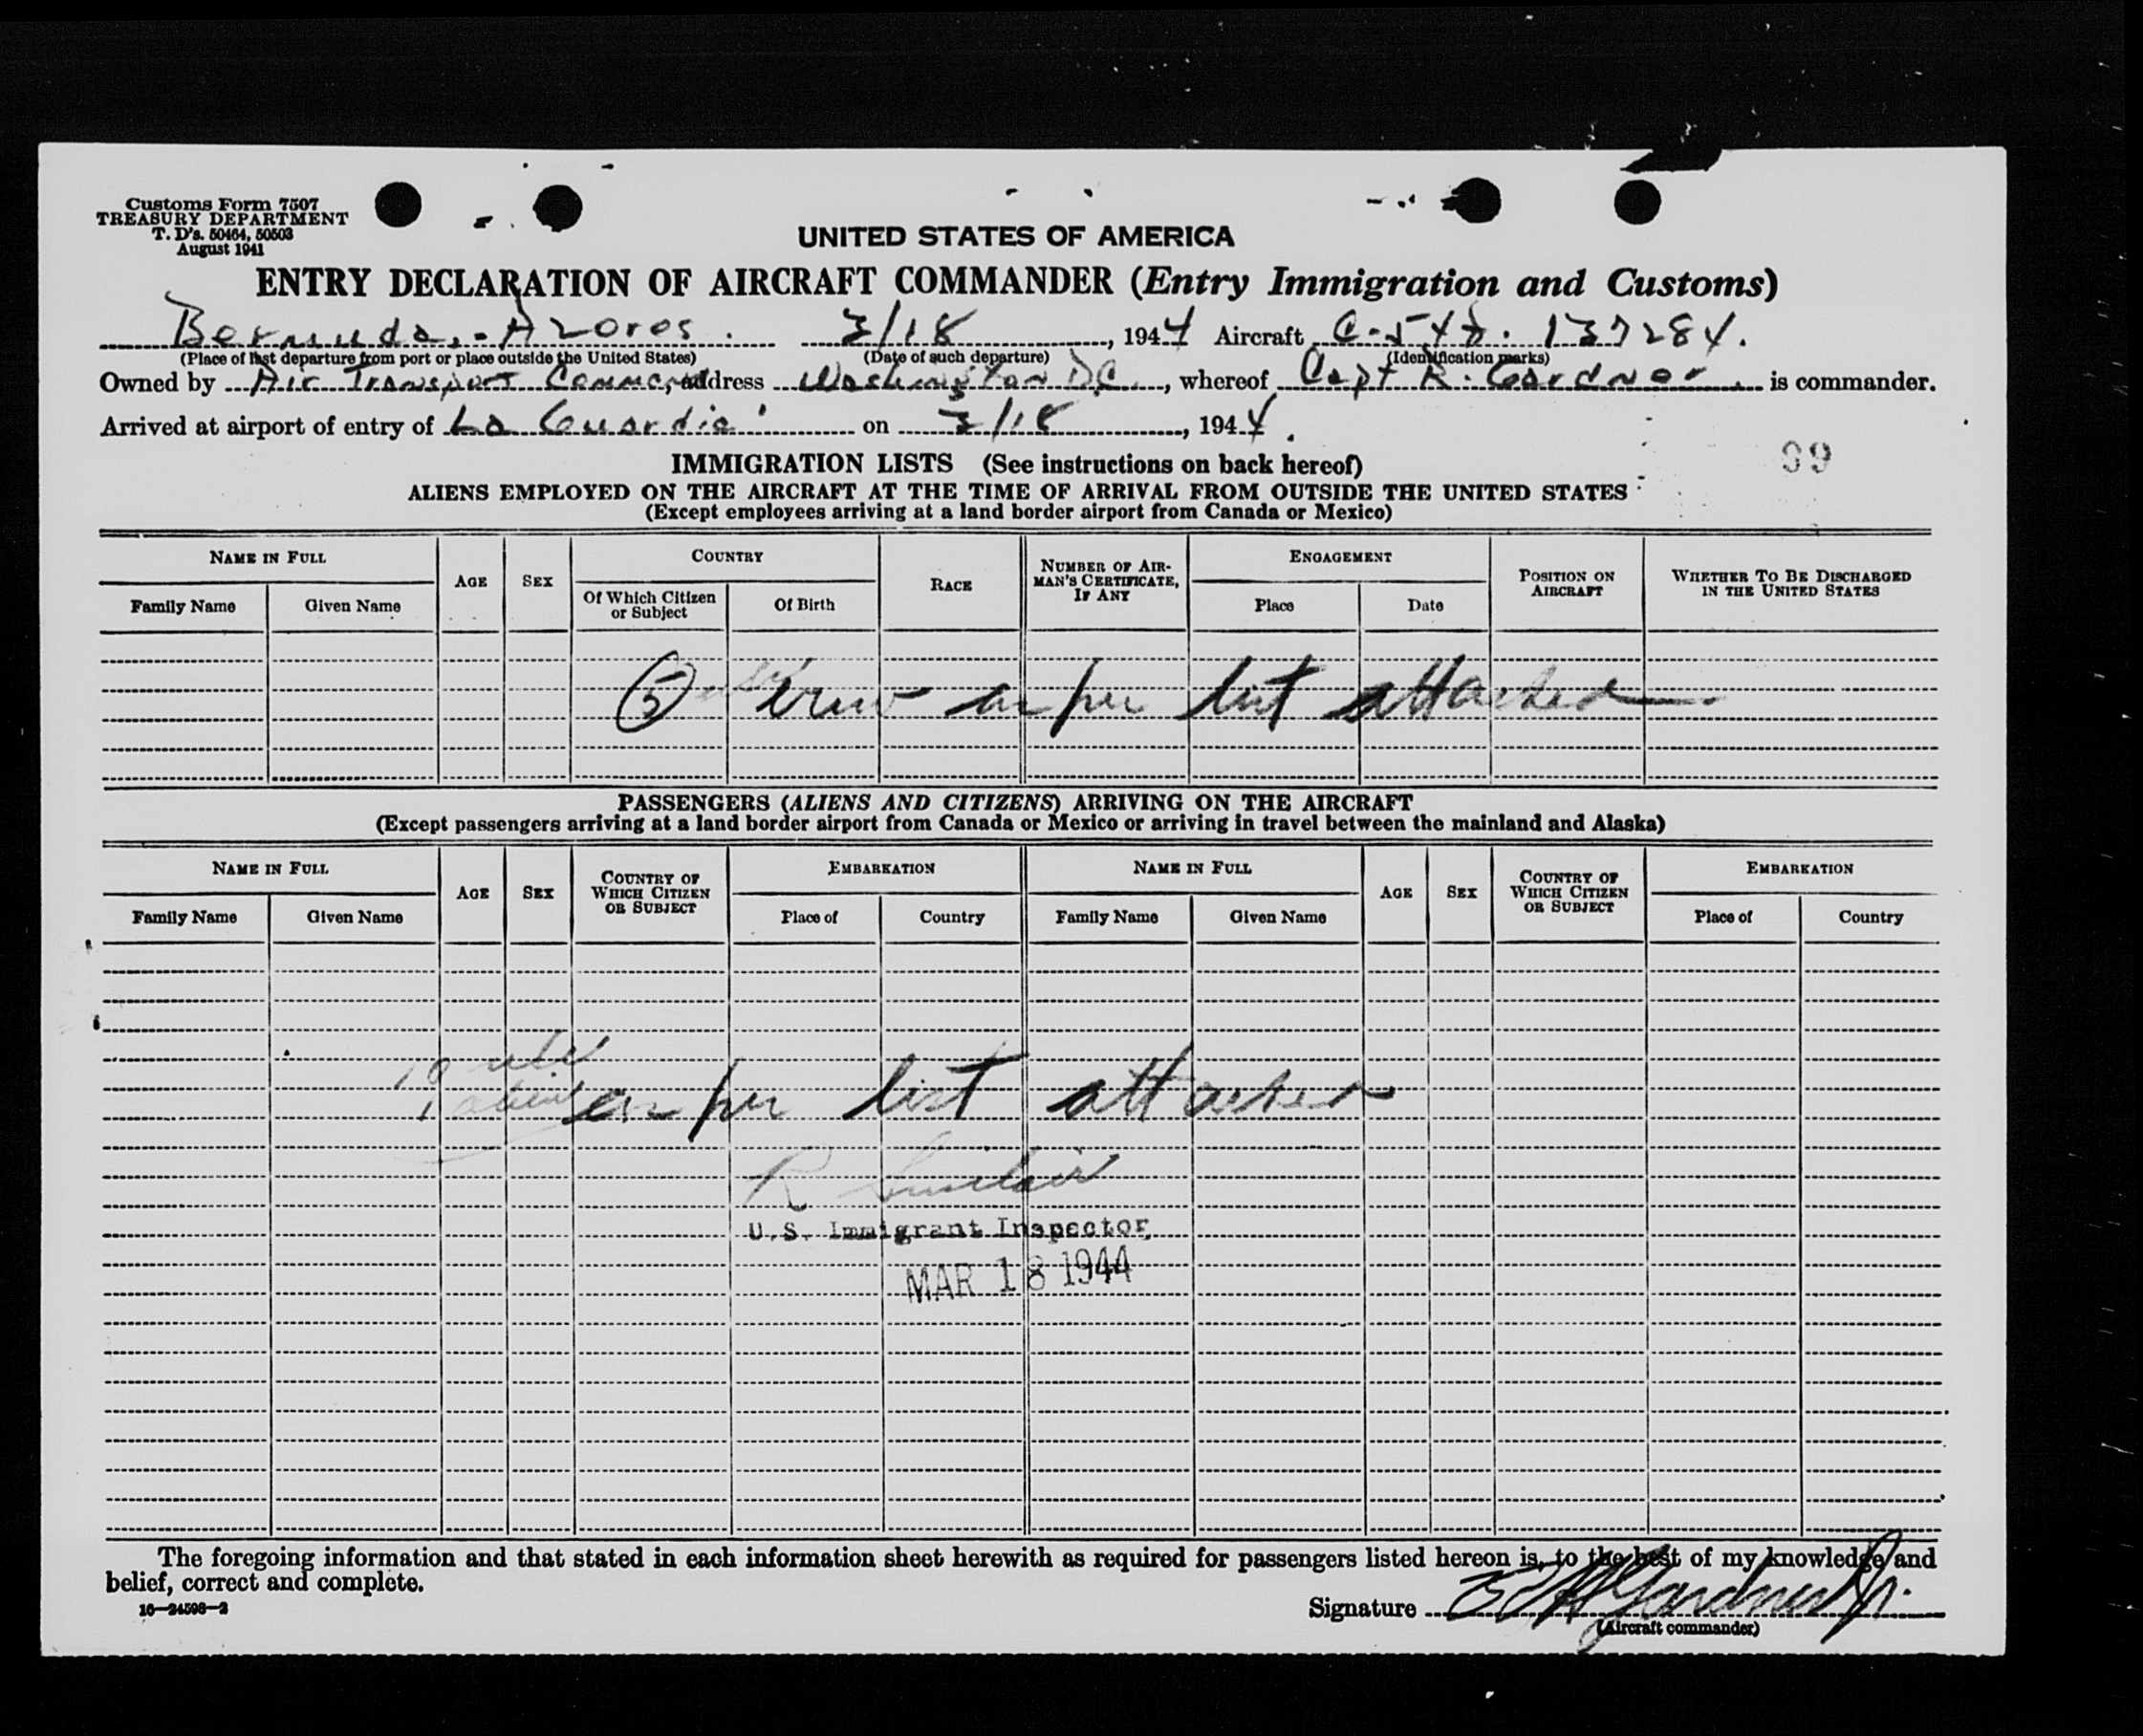 Customs Form 7507
TREASURY DEPARTMENT
T. D's. 50464, 50503
August 1941
UNITED STATES OF AMERICA
ENTRY DECLARATION OF AIRCRAFT COMMANDER (Entry Immigration and Customs)
Bermuda - Azores. 3/18, 1944 Aircraft C-54
(Place of last departure from port or place outside the United States) (Date of such departure) (Identification marks)
Owned by Air Transport Command, address Washington D.C., whereof Capt R. Gardner is commander.
Arrived at airport of entry of La Guardia on 3/18, 1944.
99
IMMIGRATION LISTS (See instructions on back hereof)
ALIENS EMPLOYED ON THE AIRCRAFT AT THE TIME OF ARRIVAL FROM OUTSIDE THE UNITED STATES
(Except employees arriving at a land border airport from Canada or Mexico)
NAME IN FULL AGE SEX COUNTRY RACE NUMBER OF AIRMAN'S CERTIFICATE, IF ANY ENGAGEMENT POSITION ON AIRCRAFT WHETHER TO BE DISCHARGED IN THE UNITED STATES
Family Name Given Name Of Which Citizen or Subject Of Birth Place Date
5 crew as per list attached
PASSENGERS (ALIENS AND CITIZENS) ARRIVING ON THE AIRCRAFT
(Except passengers arriving at a land border airport from Canada or Mexico or arriving in travel between the mainland and Alaska)
NAME IN FULL AGE SEX COUNTRY OF WHICH CITIZEN OR SUBJECT EMBARKATION NAME IN FULL AGE SEX COUNTRY OF WHICH CITIZEN OR SUBJECT EMBARKATION
Family Name Given Name Place of Country Family Name Given Name Place of Country
as per list attached
R Sinclair
U.S. Immigrant Inspector
MAR 18 1944
The foregoing information and that stated in each information sheet herewith as required for passengers listed hereon is, to the best of my knowledge and
belief, correct and complete.
16—24598-2
Signature Gardner Jr.
(Aircraft commander)